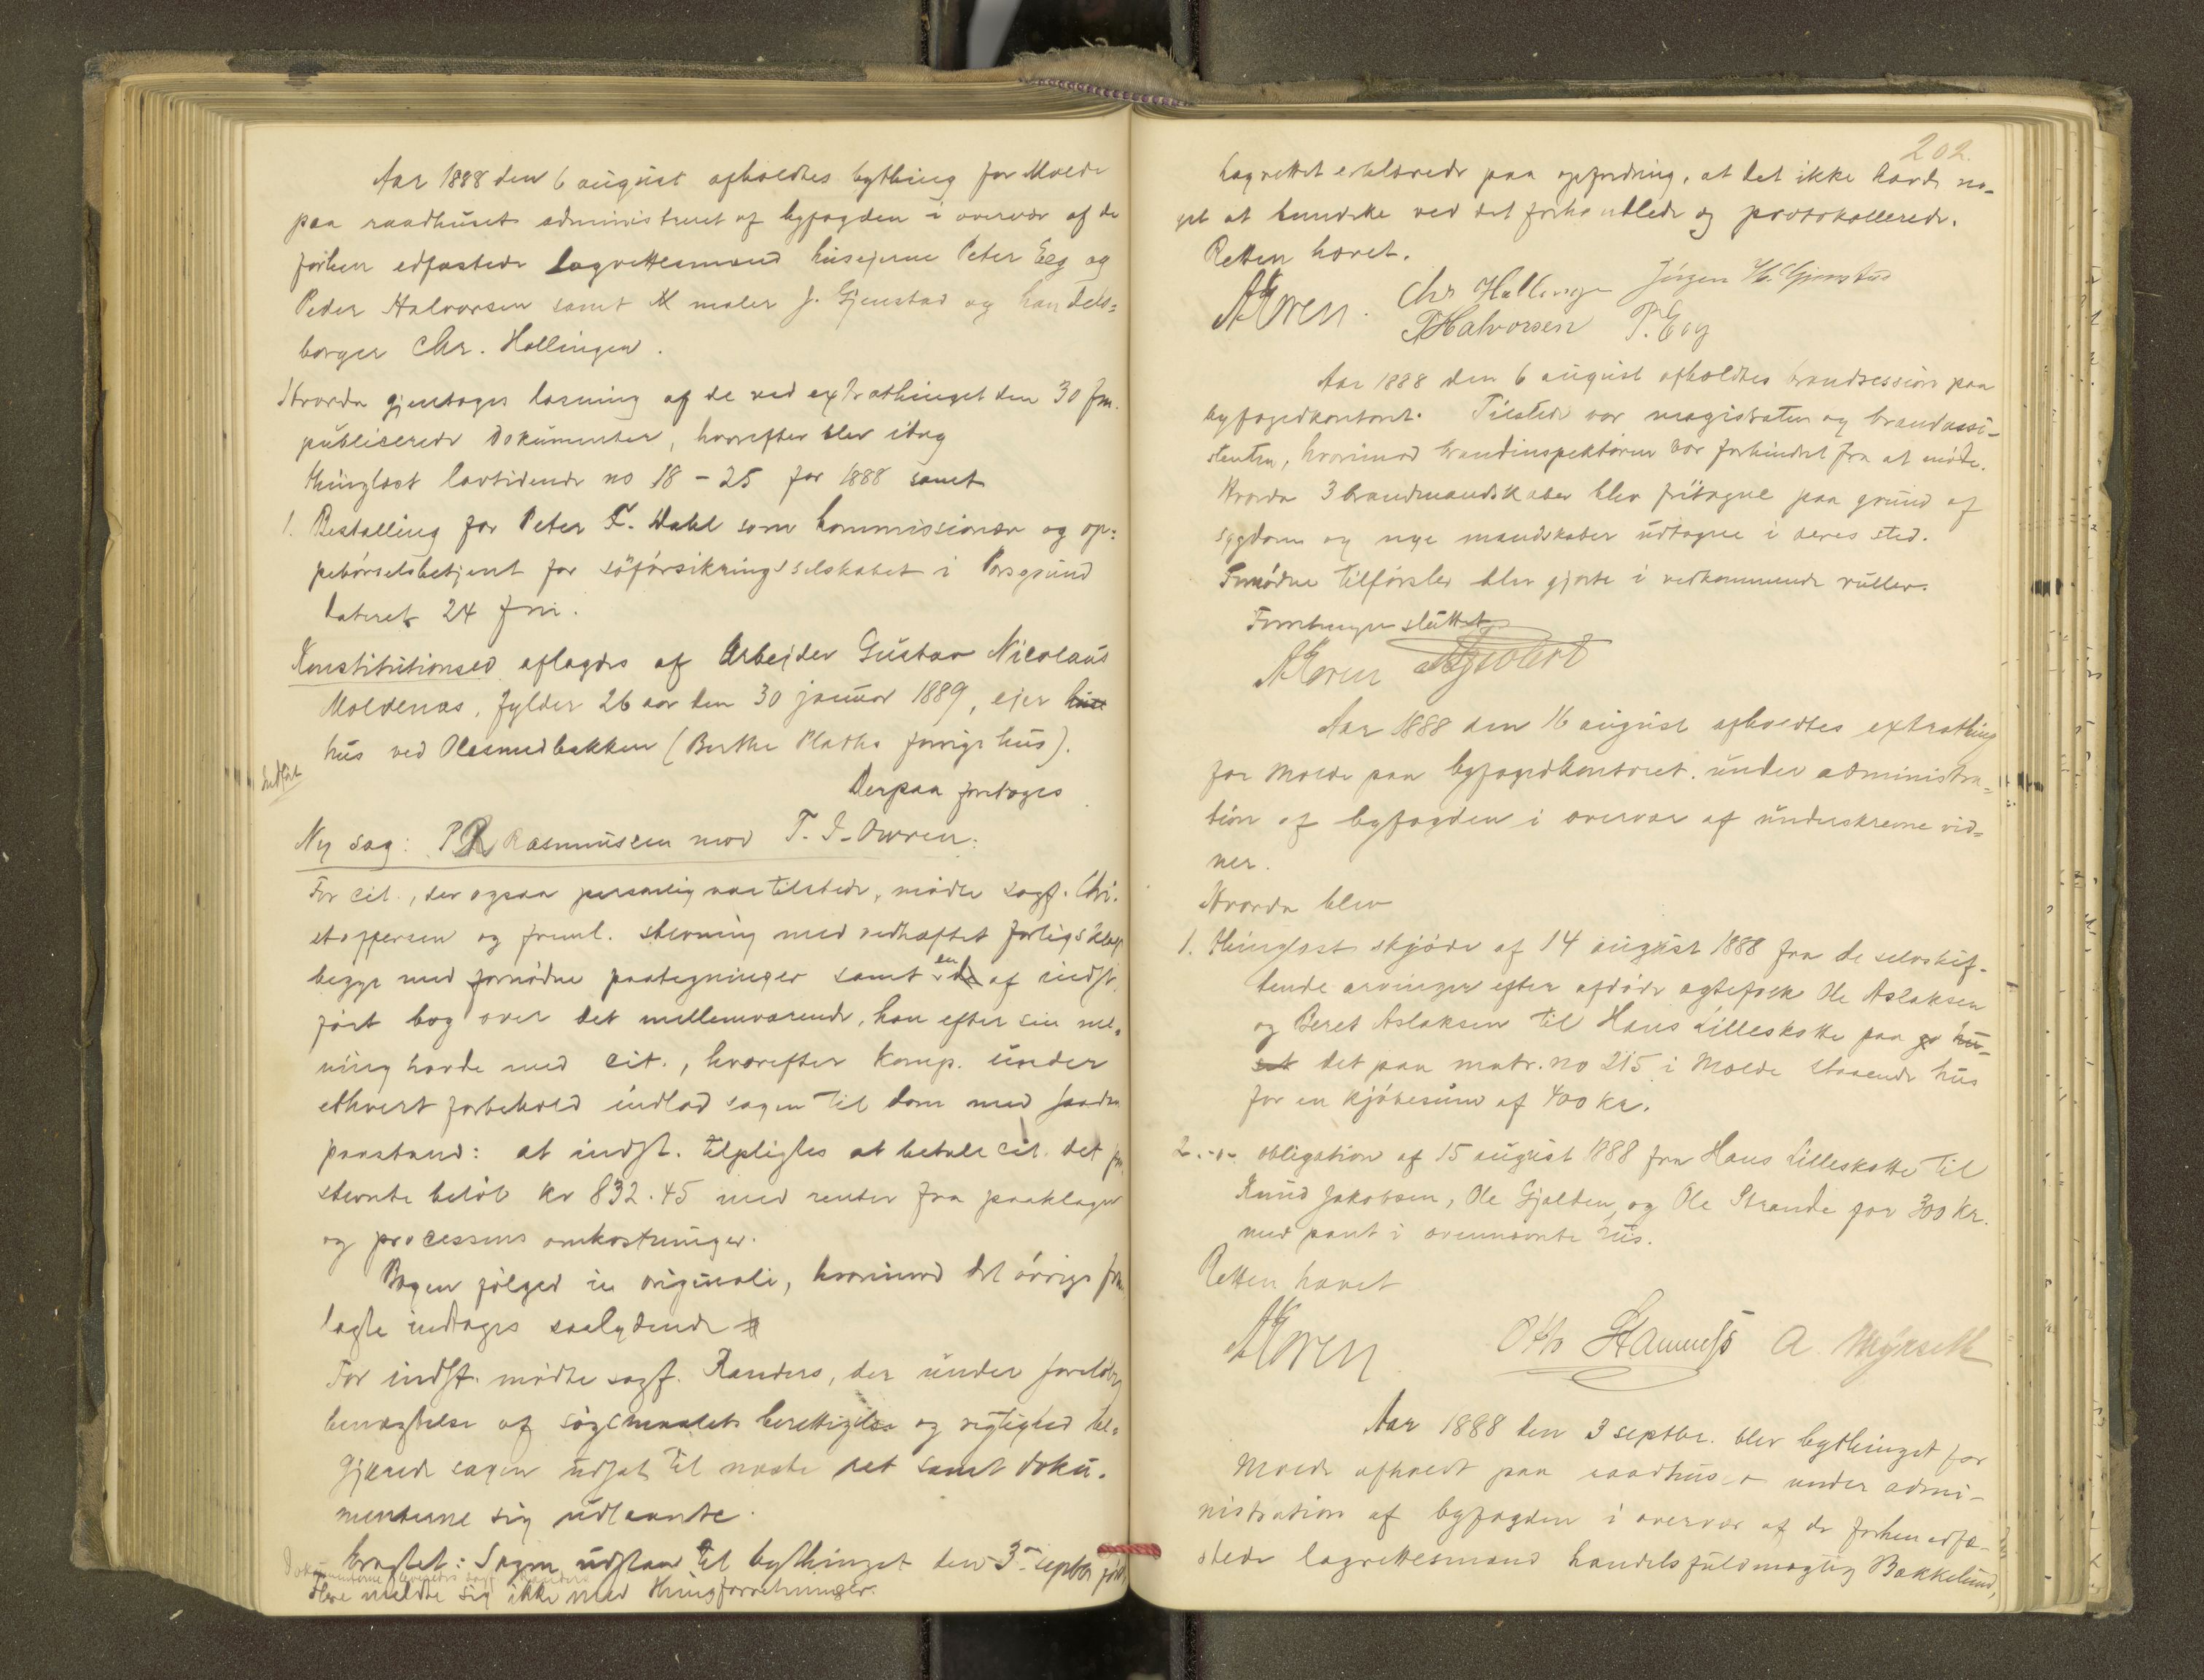 Aar 1888 den 6 august afholdtes bything for Molde
paa raadhuset administreret af byfogden i overvær af de
forhen edfæstede lagrettesmænd husejerne Peter Eeg og
Peder Halvorsen samt maler J. Gjenstad og handels-
borger Chr. Hollingen.
Hvorda gjentoges læsning af de ved extrathinget den 30 f.m.
publicerede dokumenter, hvorefter blev idag
thinglæst lovtidende no 18 - 25 for 1888 samt
1. Bestalling for Peter F. Dahl som kommissionær og op-
pebørselsbetjent for söforsikringsselskabet i Porsgrund
dateret 24 f.m.
Konstitutionsed aflagdes af Arbejder Gustav Nicolaus
Moldenæs, fylder 26 aar den 30 januar 1889, ejer huse
hus ved Olesmedbakken (Berthe Plaths forrige hus).
Indført
Derpaa foretoges
Ny sag: P R Rasmussen mod T. I. Owren.
For cit., der ogsaa personlig var tilstede, mødte sagf. Chri-
stoffersen og freml. stevning med vedhæftet forligsklage
begge med fornödne paategninger samt en de af indst.
fört bog over det mellemværende, han efter sin me-
ning havde med cit., hvorefter komp. under
ethvert forbehold indlod sagen til dom med saadan
paastand: at indst. tilpligtes at betale cit. det paa-
stevnte beløb kr 832.45 med renter fra paaklagen
og processens omkostninger.
Bogen fölger in originali, hvorimod det övrige frem-
lagte indtages saalydende #
For indst. mödte sagf. Randers, der under foreløbig
benægtelse af søgsmaalets berettigelse og rigtighed be-
gjærede sagen udsat til næste ret samt doku-
menterne sig udlaante.
Eragtet: Sagen udstaar til bythinget den 3 septbr førstk.
Dokumenterne leveredes sagf. Randers
Flere meldte sig ikke med thingforretninger.
202.
Lagrettet erklærede paa opfordring, at det ikke havde no-
get at bemærke ved det forhandlede og protokollerede.
Retten hævet.
AKoren. Chr Hollingen Jörgen H. Gjenstad
PHalvorsen P. Eeg
Aar 1888 den 6 august afholdtes brandsession paa
byfogedkontoret. Tilstede var magistraten og brandassi-
stenten, hvorimod brandinspektören var forhindret fra at möde.
Hvorda 3 brandmandskaber blev fritagne paa grund af
sygdom og nye mandskaber udtagne i deres sted.
Fornödne tilförsler blev gjorte i vedkommende ruller.
Forretningen sluttet
AKoren
Aar 1888 den 16 august afholdtes extrathing
for Molde paa byfogedkontoret under administra-
tion af byfogden i overvær af underskrevne vid-
ner.
Hvorda blev
1. thinglæst skjøde af 14 august 1888 fra de selvskif-
tende arvinger efter afdöde ægtefolk Ole Aslaksen
og Beret Aslaksen til Hans Lilleskotte paa hu-
set det paa matr. no 215 i Molde staaende hus
for en kjöbesum af 400 kr.
2. -"- obligation af 15 august 1888 fra Hans Lilleskotte til
Knud Jakobsen, Ole Gjelden og Ole Strande for 300 kr.
med pant i ovennævnte hus.
Retten hævet
AKoren Otto Hammeß A. Myrseth
Aar 1888 den 3 septbr. blev bythinget for
Molde afholdt paa raadhuset under admi-
nistration af byfogden i overvær af de forhen edfæ-
stede lagrettesmænd handelsfuldmægtig Bakkelund,